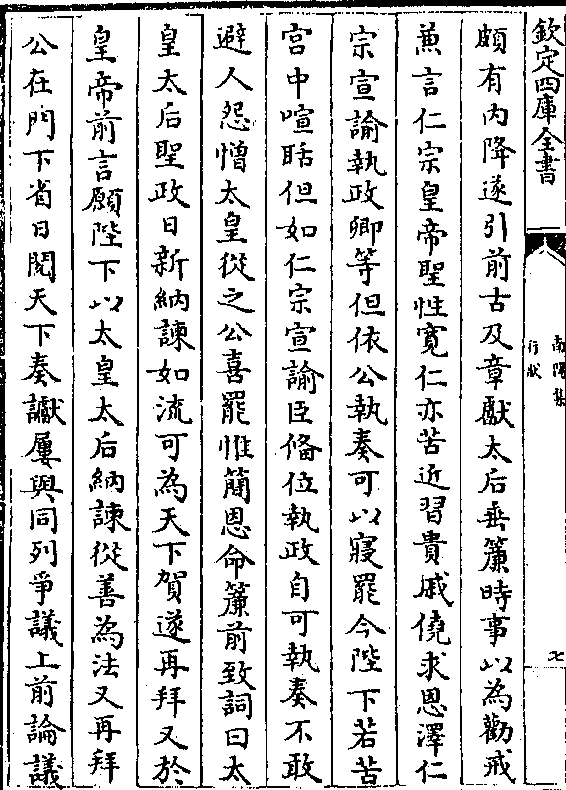 欽定四庫全書
南陽集
行狀
七
頗有内降遂引前古及章獻太后垂簾時事以為勸戒
兼言仁宗皇帝聖性寬仁亦苦近習貴戚僥求恩澤仁
宗宣諭執政卿等但依公執奏可以寢罷今陛下若苦
宫中喧聒但如仁宗宣諭臣備位執政自可執奏不敢
避人怨憎太皇從之公喜罷惟簡恩命簾前致詞曰太
皇太后聖政日新納諫如流可為天下賀遂再拜又於
皇帝前言願陛下以太皇太后納諫從善為法又再拜
公在門下省日閲天下奏讞屢與同列爭議上前論議